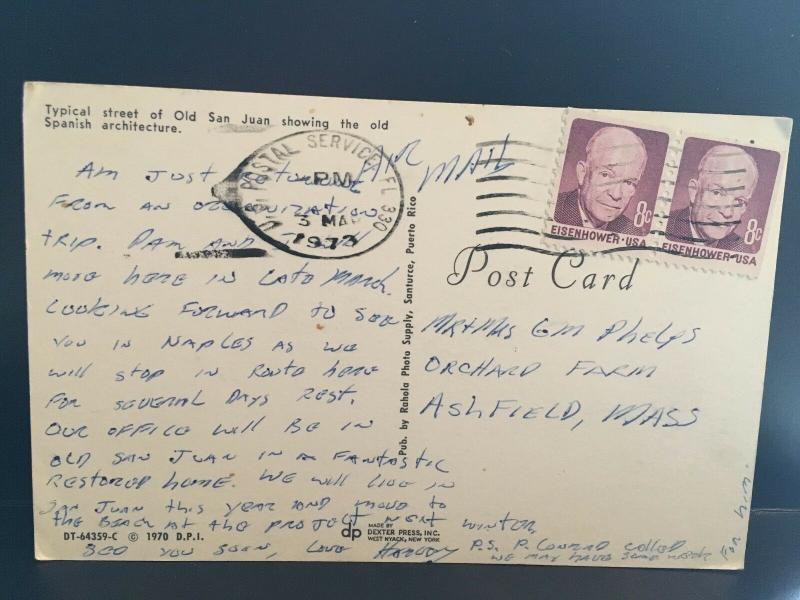 Typical street of Old San Juan showing the old
Spanish architecture.
AIR MAIL
U.S. POSTAL SERVICE FL 330
PM
3 MAR
1973
8c
EISENHOWER·USA
8c
EISENHOWER·USA
Post Card
Am Just
From an organization
trip. Pam and
move here in late March.
Looking forward to see
you in Naples as we
will stop in route here
for several days rest.
Our office will be in
Old San Juan in a fantastic
restored home. We will live in
San Juan this year and move to
the Beach at the project next winter.
See you soon, Love Harvey
P.S. P. Conrad called
we may have some work
for him.
Mr+Mrs GM Phelps
Orchard Farm
Ashfield, Mass
Pub. by Rahola Photo Supply, Santurce, Puerto Rico
DT-64359-C © 1970 D.P.I.
dp
MADE BY
DEXTER PRESS, INC.
WEST NYACK, NEW YORK